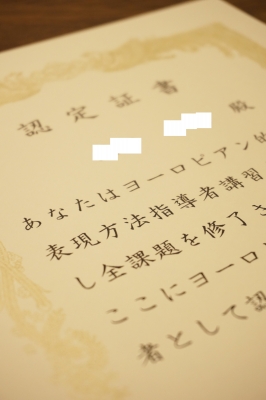 認定証書
殿
あなたはヨーロピアン的
表現方法指導者講習
し全課題を修了さ
ここにヨーロ
者として認